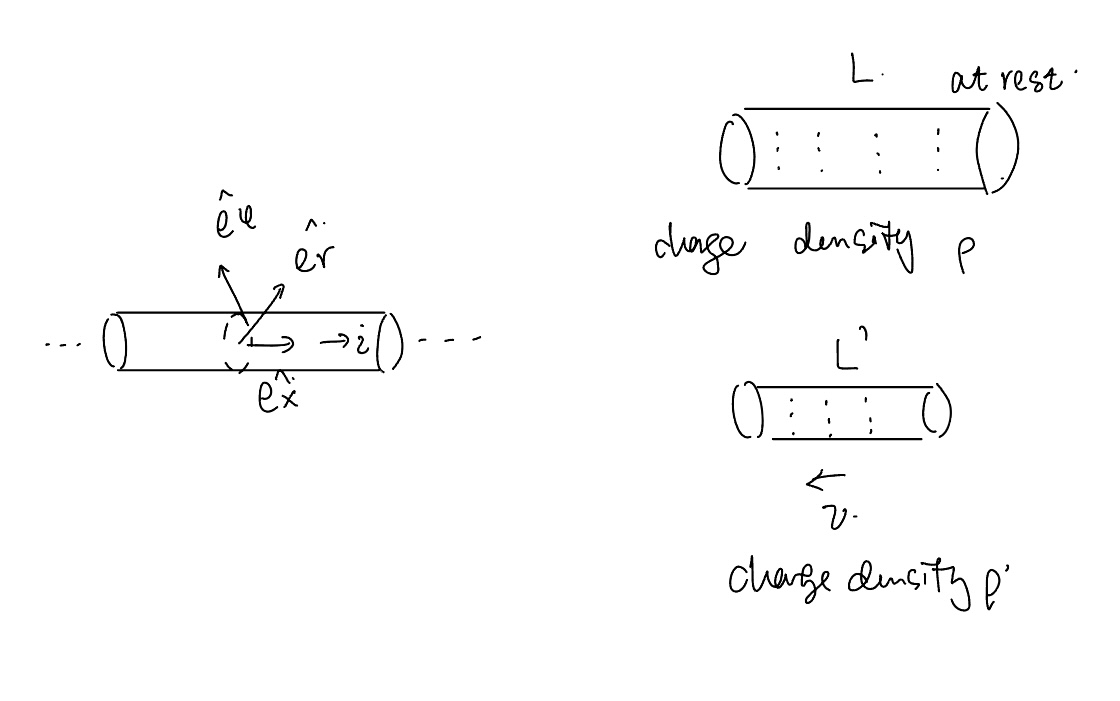 ê_φ
ê_r
... → i ...
ê_x
L.
at rest.
charge density ρ
L'
← v.
charge density ρ'